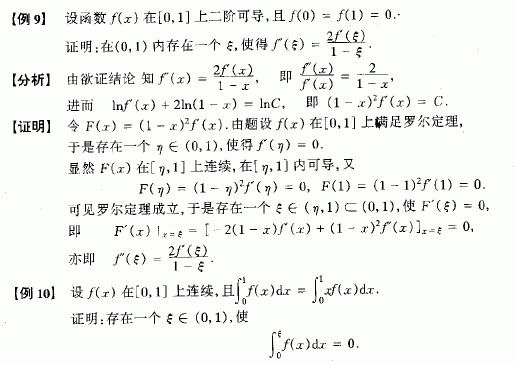 【例9】 设函数 f(x) 在[0,1] 上二阶可导,且 f(0) = f(1) = 0.
证明:在(0,1) 内存在一个 ξ,使得 f″(ξ) = 2f′(ξ)/(1 - ξ).
【分析】 由欲证结论 知 f″(x) = 2f′(x)/(1 - x), 即 f″(x)/f′(x) = 2/(1 - x),
进而 lnf′(x) + 2ln(1 - x) = lnC, 即 (1 - x)²f′(x) = C.
【证明】 令 F(x) = (1 - x)²f′(x). 由题设 f(x) 在[0,1] 上满足罗尔定理,
于是存在一个 η ∈ (0,1),使得 f′(η) = 0.
显然 F(x) 在[η,1] 上连续,在[η,1] 内可导,又
F(η) = (1 - η)²f′(η) = 0, F(1) = (1 - 1)²f′(1) = 0.
可见罗尔定理成立,于是存在一个 ξ ∈ (η,1) ⊂ (0,1),使 F′(ξ) = 0,
即 F′(x)|ₓ₌ξ = [- 2(1 - x)f′(x) + (1 - x)²f″(x)]ₓ₌ξ = 0,
亦即 f″(ξ) = 2f′(ξ)/(1 - ξ).
【例10】 设 f(x) 在[0,1] 上连续,且∫₀¹f(x)dx = ∫₀¹xf(x)dx.
证明:存在一个 ξ ∈ (0,1),使
∫₀^ξ f(x)dx = 0.